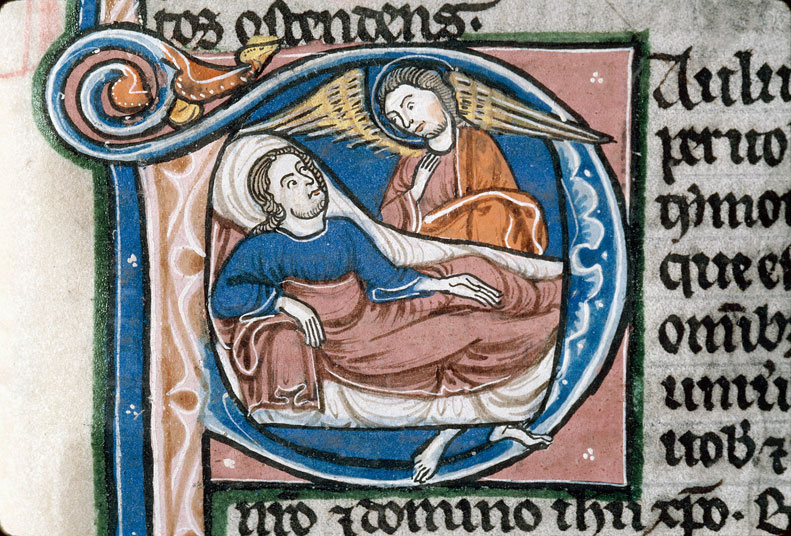 tos ostendens.
Aulu
per uo
thimot
que es
omnib;
uniu
uob ⁊
nro ⁊ domino ihu xpo. B